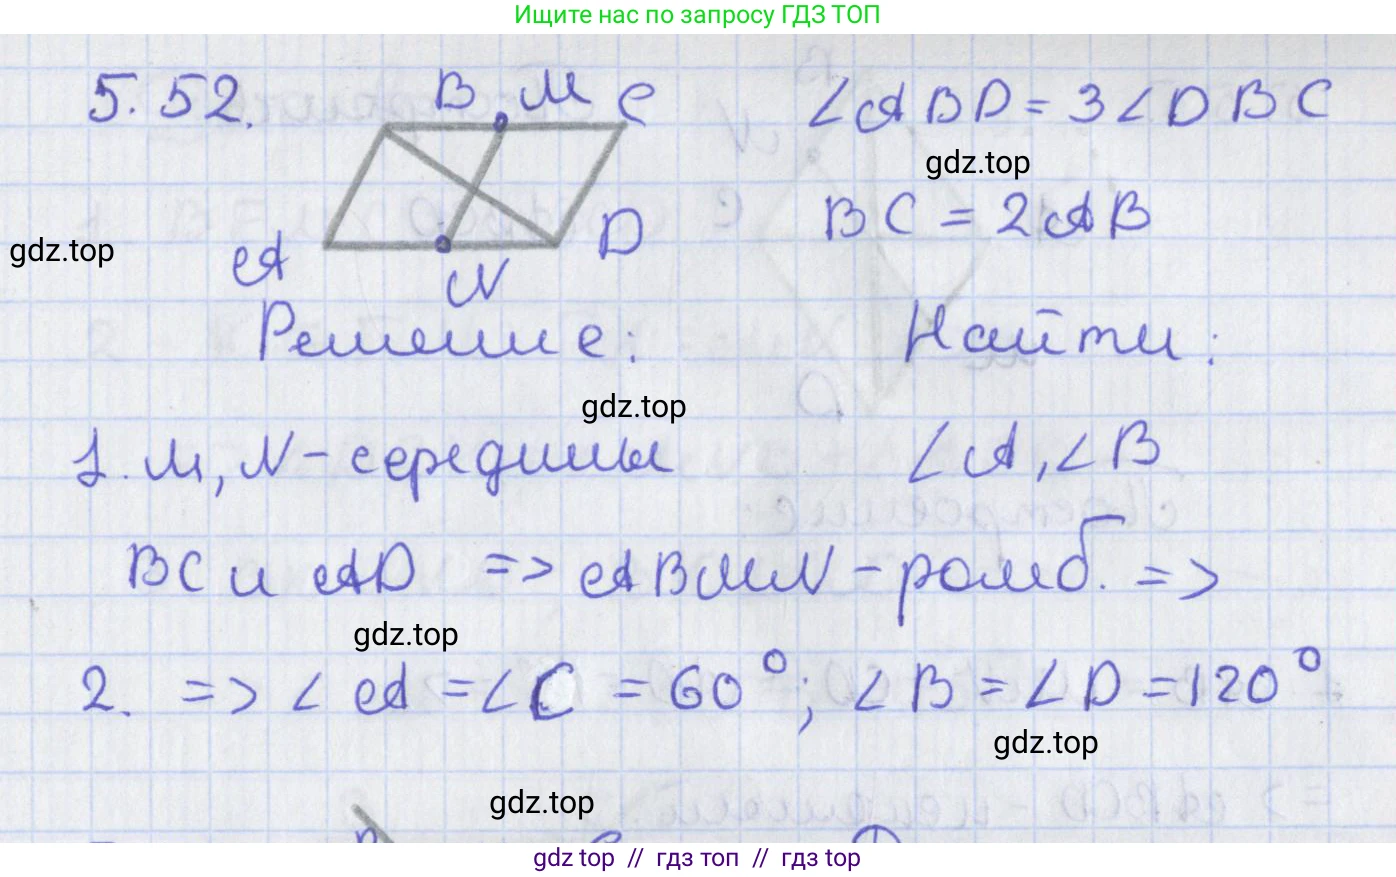 Ищите нас по запросу ГДЗ ТОП
5.52. B M C ∠ABD = 3∠DBC
gdz.top
BC = 2AB
gdz.top
A D
N
Решение: Найти:
gdz.top
1. M, N - середины ∠A, ∠B
BC и AD => ABMN - ромб. =>
gdz.top
2. => ∠A = ∠C = 60°; ∠B = ∠D = 120°
gdz.top
gdz.top
gdz top // гдз топ // гдз top